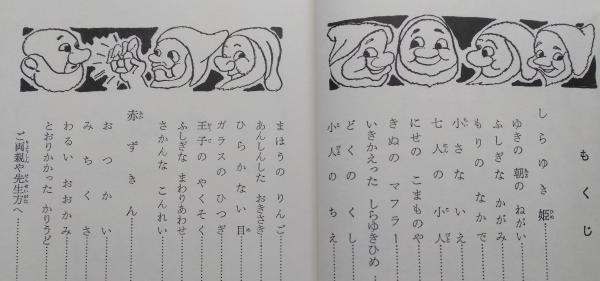 もくじ
しらゆき姫
ゆきの 朝の ねがい
ふしぎな かがみ
もりの なかで
小さな いえ
七人の 小人
にせの こまものや
きぬの マフラー
いきかえった しらゆきひめ
どくの くし
小人の ちえ
まほうの りんご
あんしんした おきさき
ひらかない 目
ガラスの ひつぎ
王子の やくそく
ふしぎな まわりあわせ
さかんな こんれい
赤ずきん
おつかい
みちくさ
わるい おおかみ
とおりかかった かりうど
ご両親や先生方へ